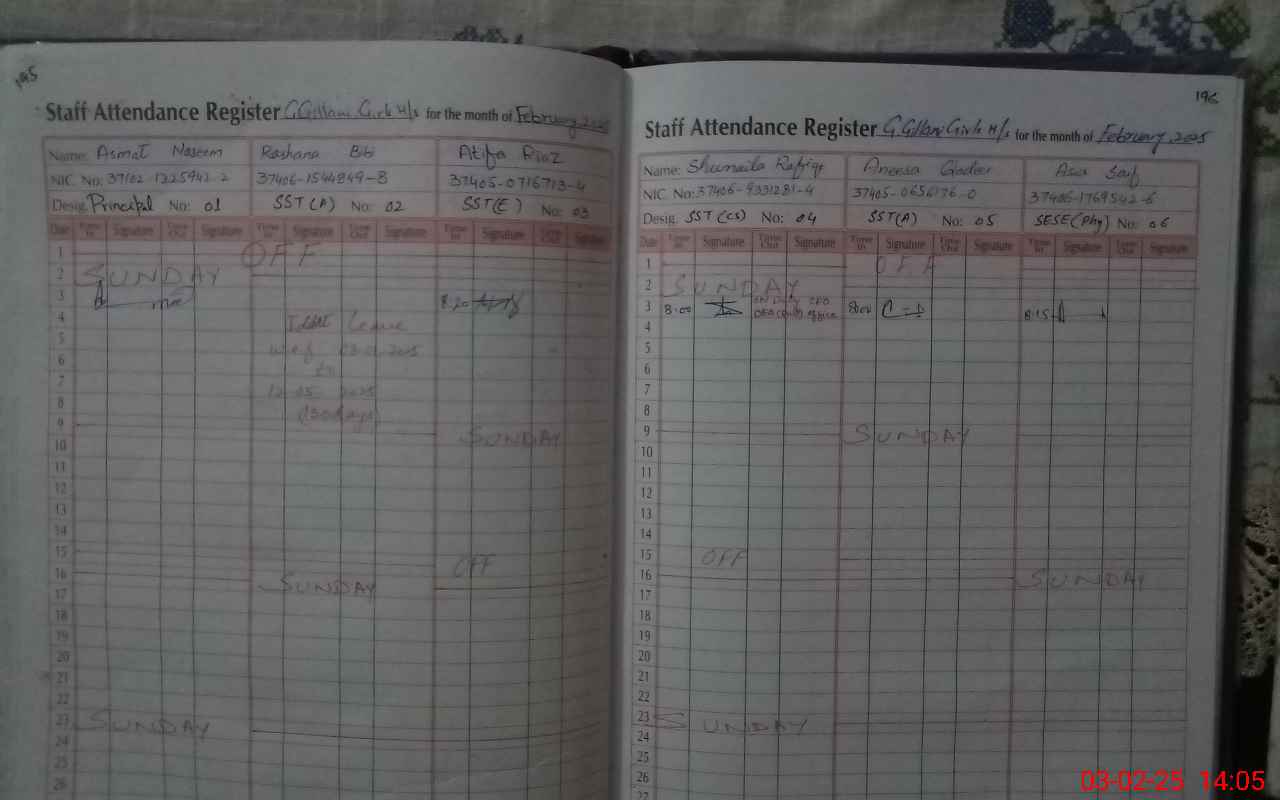 195
Staff Attendance Register G.Gillani Girls H/s for the month of February 2025
Name: Asmat Naseem Rashana Bibi Atifa Riaz
NIC. No: 37406-1544849-8 37405-0716713-4
Desig. Principal No: 01 SST(A) No: 02 SST(E) No: 03
Date Time In Signature Time Out Signature Time In Signature Time Out Signature Time In Signature Time Out Signature
1 OFF
2 SUNDAY
3 8:20
4 Leave
5 w.e.f 2025
6 to
7 12 05 2025
8 days)
9 SUNDAY
10
11
12
13
14
15 OFF
16 SUNDAY
17
18
19
20
21
22
23 SUNDAY
24
25
26
196
Staff Attendance Register G.Gillani Girls H/s for the month of February 2025
Name: Shumaila Rafiqe Aneesa Qadeer Asia Saif
NIC. No: 37406-9331281-4 37405-0656176-0 37406-1769542-6
Desig. SST(CS) No: 04 SST(A) No: 05 SESE(Phy) No: 06
Date Time In Signature Time Out Signature Time In Signature Time Out Signature Time In Signature Time Out Signature
1 OFF
2 SUNDAY
3 8:00 ON Duty CEO office 8:00 8:15
4
5
6
7
8
9 SUNDAY
10
11
12
13
14
15 OFF
16 SUNDAY
17
18
19
20
21
22
23 SUNDAY
24
25
26
27
03-02-25 14:05